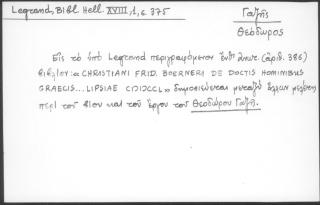 Legrand, Bibl. Hell. XVIII, 1, σ. 375
Γαζῆς
Θεόδωρος
Εἰς τὸ ὑπὸ Legrand περιγραφόμενον ἐνταῦθα (ἀριθ. 386)
βιβλίον: « CHRISTIANI FRID. BOERNERI DE DOCTIS HOMINIBUS
GRAECIS... LIPSIAE CIƆIƆCCL » δημοσιεύεται μεταξὺ ἄλλων μελέτη
περὶ τοῦ βίου καὶ τοῦ ἔργου τοῦ Θεοδώρου Γαζῆ.